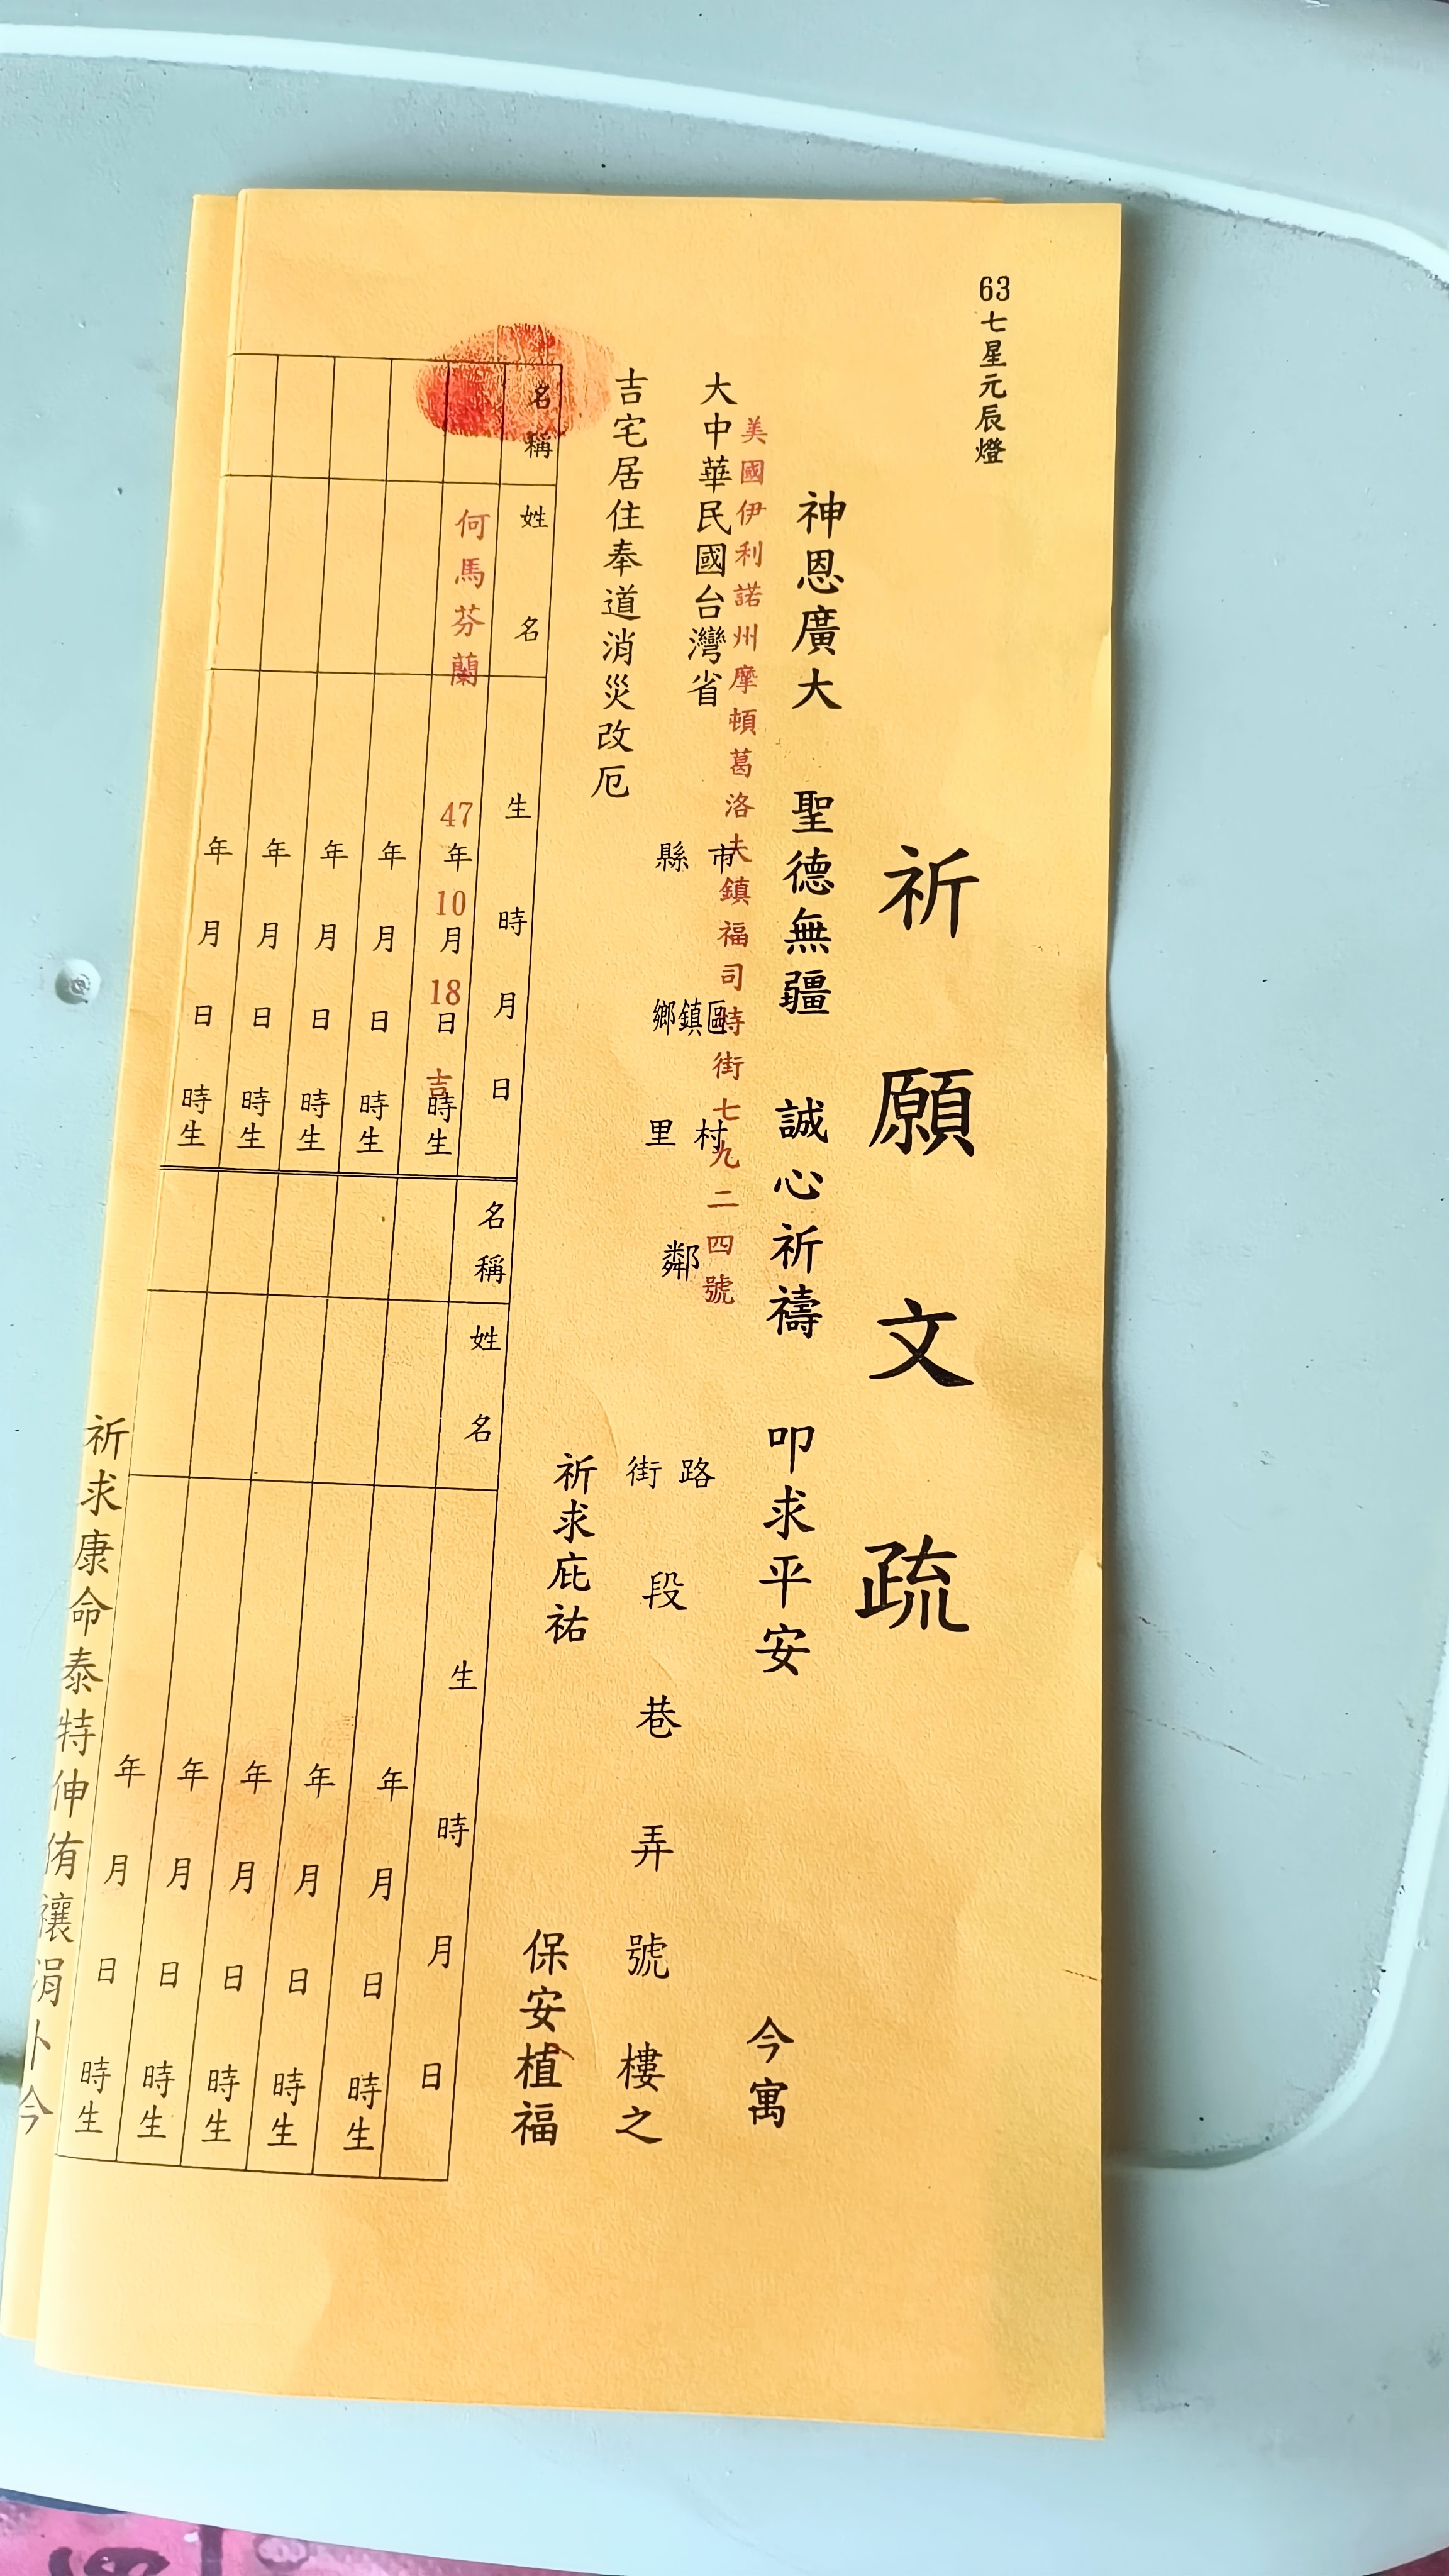 63七星元辰燈
祈願文疏
神恩廣大 聖德無疆 誠心祈禱 叩求平安 今寓
美國伊利諾州摩頓葛洛夫鎮福司特街七九二四號
大中華民國台灣省 縣市 鄉鎮區 里村 鄰 街路 段 巷 弄 號 樓之
吉宅居住奉道消災改厄 祈求庇祐 保安植福
名稱 姓名 生時月日 名稱 姓名 生時月日
何馬芬蘭 47年10月18日吉時生 年月日時生
年月日時生 年月日時生
年月日時生 年月日時生
年月日時生 年月日時生
年月日時生 年月日時生
祈求康命泰特伸侑禳涓卜今